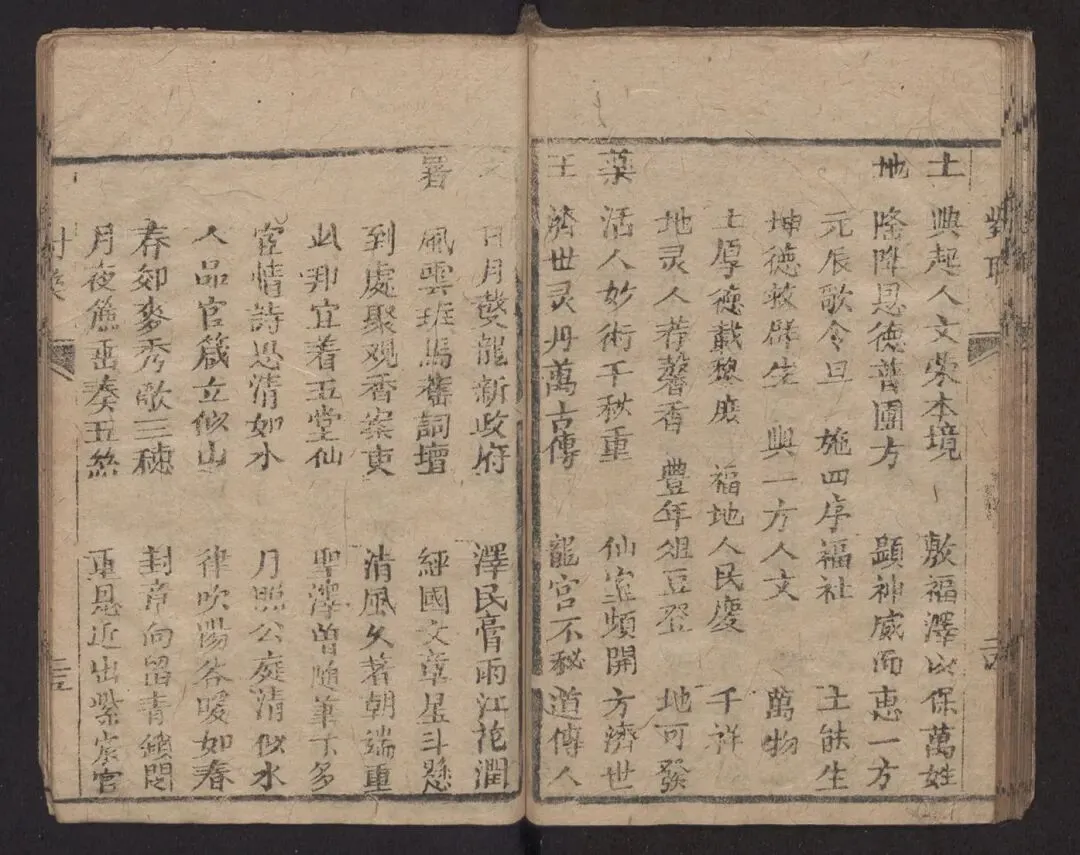 對聯
土 興起人文榮本境 敷福澤以保萬姓
地 隆陞恩德普團方 顕神威而惠一方
元辰歌令旦 施四序福祉 土能生
坤德群生 興一方人文 萬物
土厚德載黎庶 福地人民慶 千祥
地灵人荐馨香 豊年俎豆登 地可發
藥 活人妙術千秋重 仙室頻開方濟世
王 濟世灵丹萬古傳 龍宮不秘道傳人
日月夔龍新政府 澤民膏雨江花潤
署 風雲班馬舊詞壇 經國文章星斗懸
到處聚观香案吏 清風久著朝端重
此邦宜着玉堂仙 聖澤曽随筆下多
宦情詩思清如水 月照公庭清似水
人品官箴立似山 律吹陽谷暖如春
春郊麥秀歌三穗 封章向留青鎖
月夜簾垂奏五絲 重恩近出紫宸宮
對聯